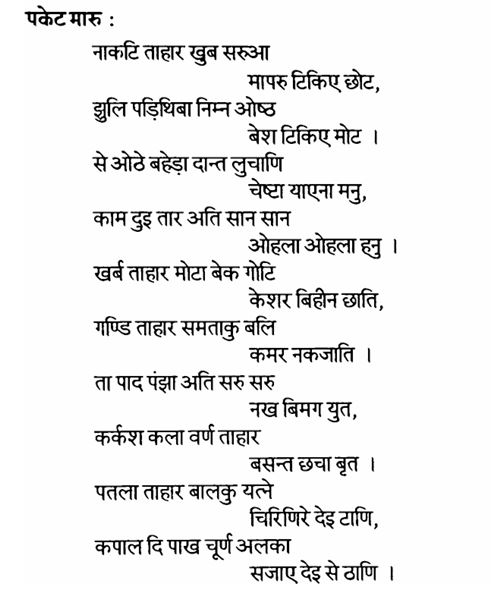 पकेट मारु :
नाकटि ताहार खुब सरुआ
मापरु टिकिए छोट,
झुलि पड़िथिबा निम्न ओष्ठ
बेश टिकिए मोट ।
से ओठे बहेड़ा दान्त लुचाणि
चेष्टा याएना मनु,
काम दुइ तार अति सान सान
ओहला ओहला हनु ।
खर्ब ताहार मोटा बेक गोटि
केशर बिहीन छाति,
गण्डि ताहार समताकु बलि
कमर नकजाति ।
ता पाद पंझा अति सरु सरु
नख बिमग युत,
कर्कश कला वर्ण ताहार
बसन्त छचा बृत ।
पतला ताहार बालकु यत्ने
चिरिणिरे देइ टाणि,
कपाल दि पाख चूर्ण अलका
सजाए देइ से ठाणि ।